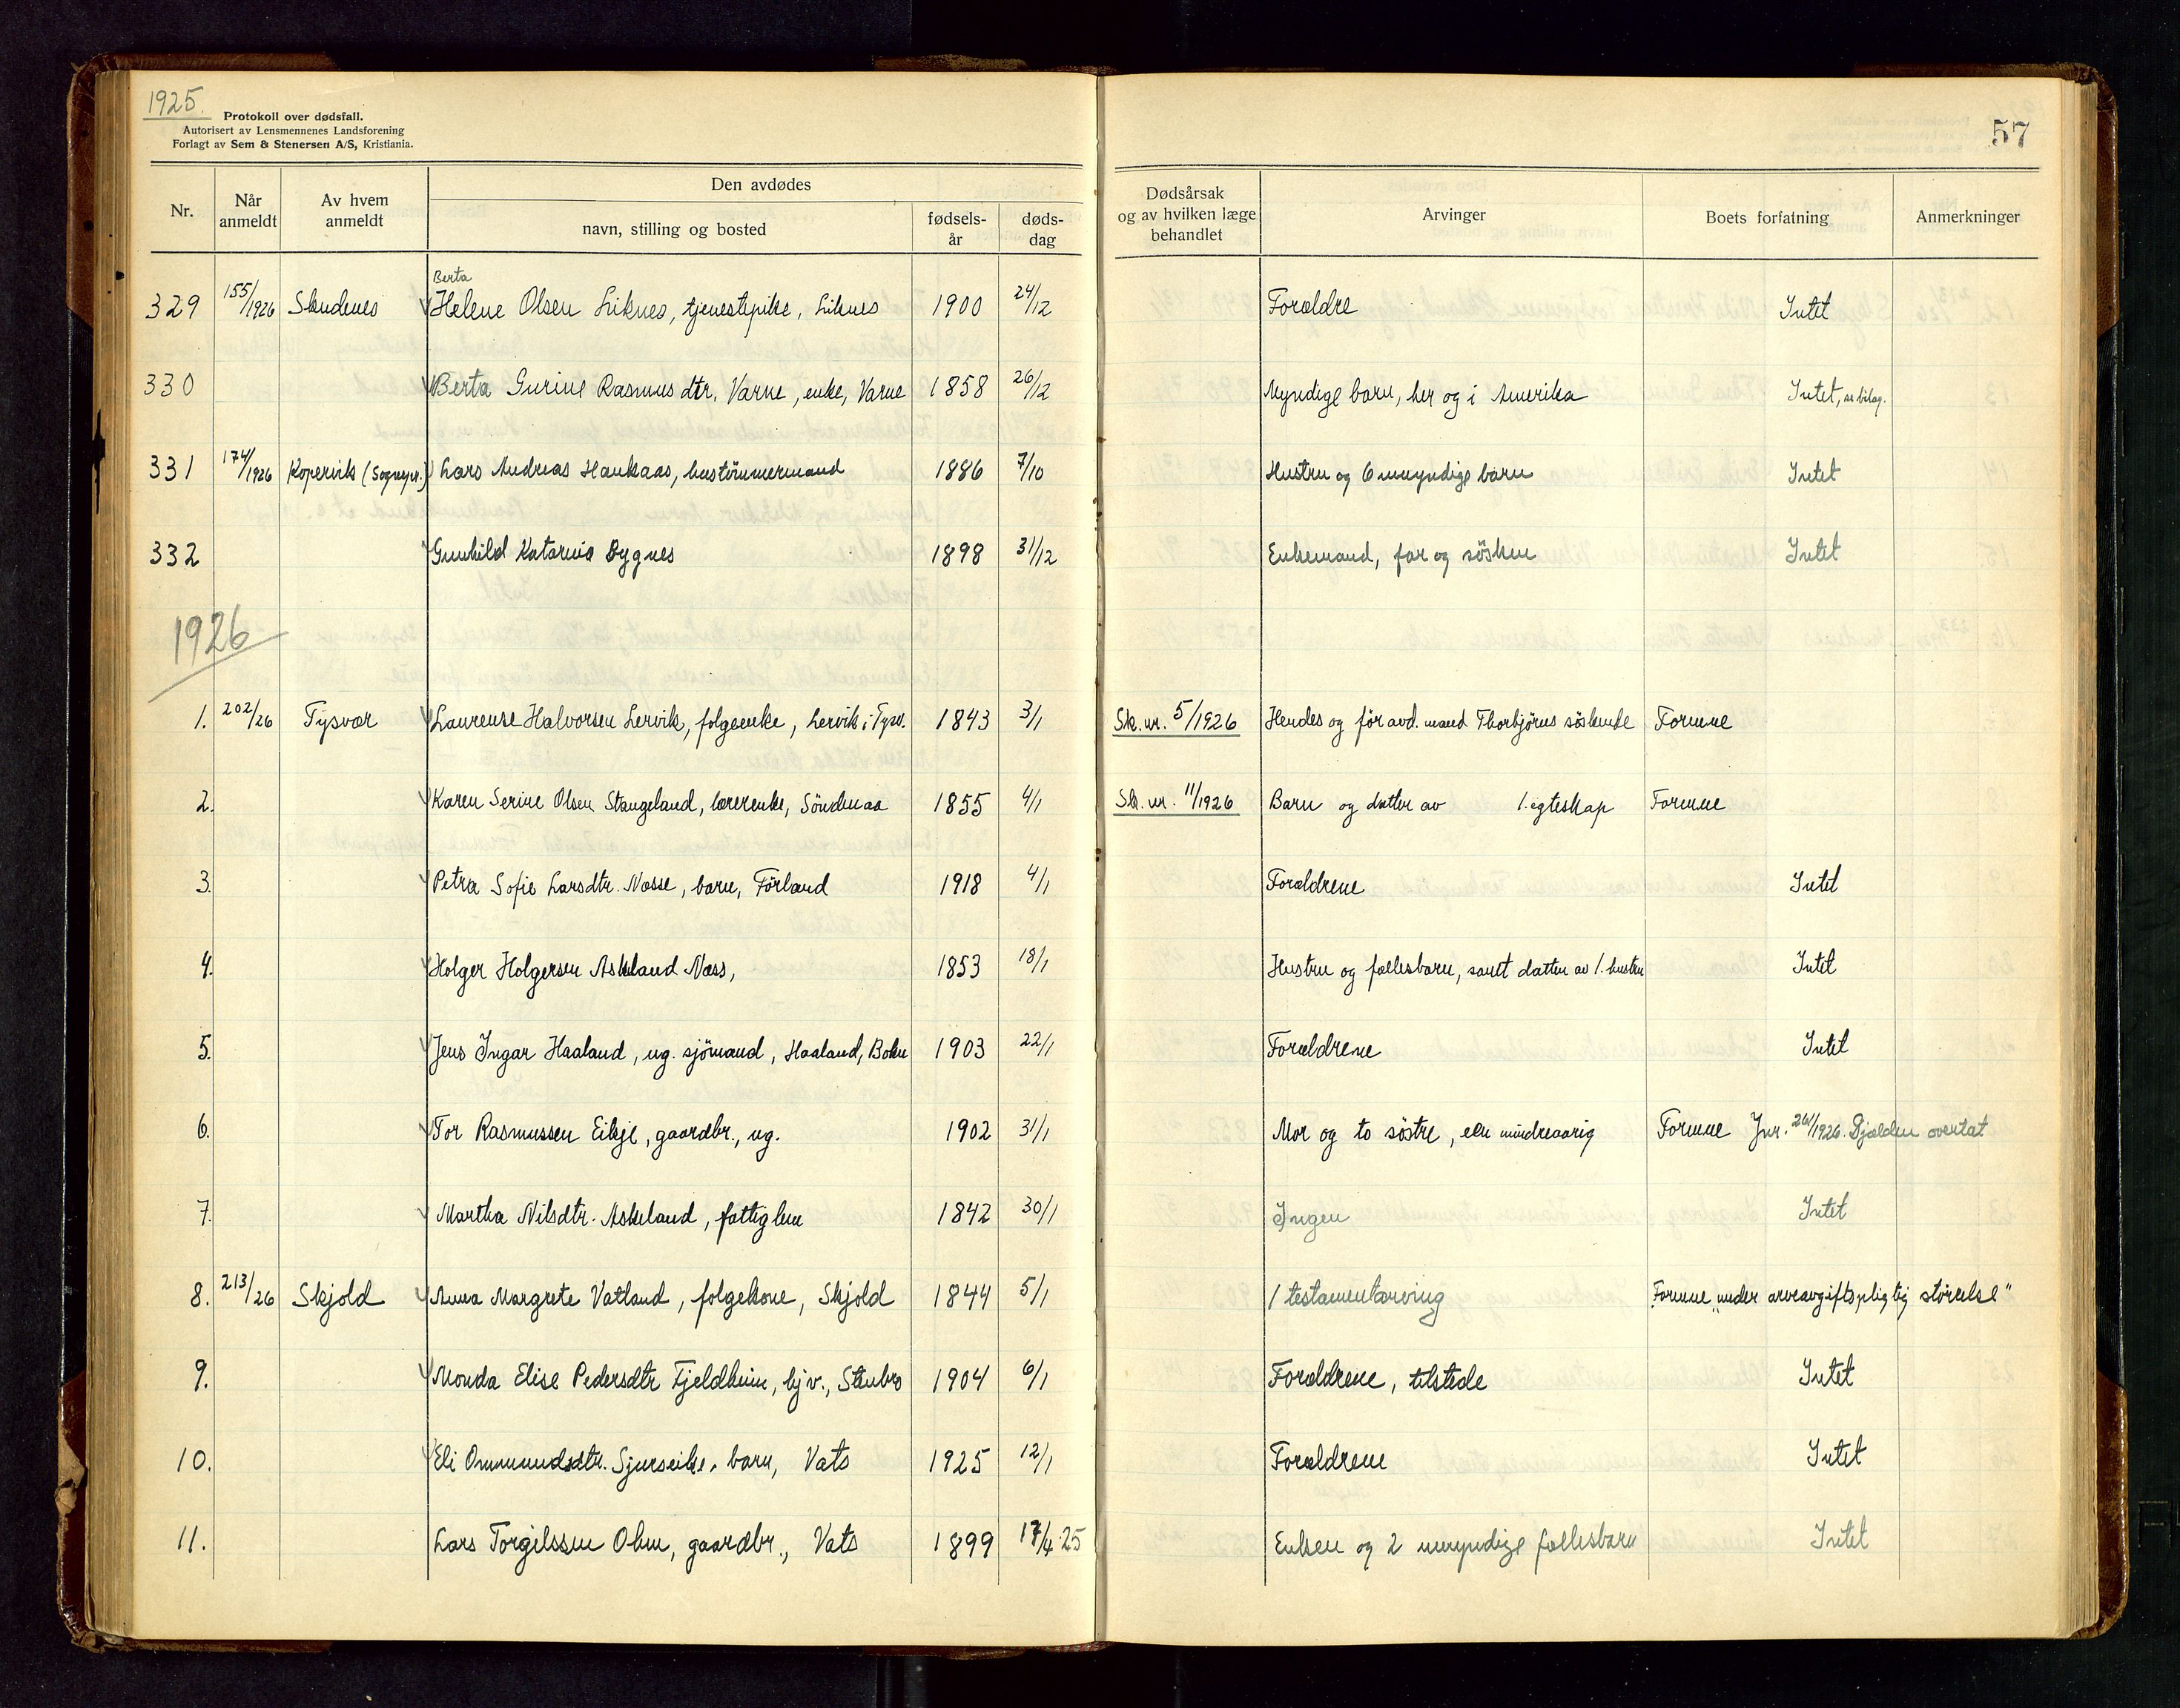 1925.
Protokoll over dødsfall.
Autorisert av Lensmennenes Landsforening
Forlagt av Sem & Stenersen A/S, Kristiania.
57
Nr. Når anmeldt Av hvem anmeldt Den avdødes navn, stilling og bosted fødsels-år døds-dag Dødsårsak og av hvilken læge behandlet Arvinger Boets forfatning Anmerkninger
Berta
329 155/1926 Skudenes Helene Olsen Liknes, tjenestepike, Liknes 1900 24/12 Forældre Intet
330 Berta Gurine Rasmusdtr. Varne, enke, Varne 1858 26/12 Myndige barn, her og i Amerika Intet, se bilag.
331 174/1926 Kopervik (Sognepr.) Lars Andreas Haukaas, hustømmermand 1886 7/10 Hustru og 6 umyndige barn Intet
332 Gunhild Katarina Dygnes 1898 31/12 Enkemand, far og søsken Intet
1926
1. 202/26 Tysvær Laurense Halvorsen Lervik, folgeenke, Lervik i Tysv. 1843 3/1 Sk. nr. 5/1926 Hendes og før avd. mand Thorbjørns søskende Formue
2. Karen Serine Olsen Stangeland, lærerenke, Søndenaa 1855 4/1 Sk. nr. 11/1926 Barn og datter av 1. egteskap Formue
3. Petra Sofie Larsdtr. Næsse, barn, Førland 1918 4/1 Forældrene Intet
4. Holger Holgersen Askeland Næss, 1853 18/1 Hustru og fællesbarn, samt datter av 1. hustru Intet
5. Jens Ingar Haaland, ug. sjømand, Haaland, Bokn 1903 22/1 Forældrene Intet
6. Tor Rasmussen Eikje, gaardbr., ug. 1902 31/1 Mor og to søstre, een mindreaarig Formue Jnr. 261/1926. Gjælden overtat
7. Martha Nilsdtr. Askeland, fattiglem 1842 30/1 Ingen Intet
8. 213/26 Skjold Anna Margrete Vatland, folgekone, Skjold 1844 5/1 1 testamentarving Formue „under arveavgiftspligtig størrelse"
9. Monda Elise Pedersdtr Fjeldheim, hjv., Stenbro 1904 6/1 Forældrene, tilstede Intet
10. Eli Ommundsdtr. Sjurseike, barn, Vats 1925 12/1 Forældrene Intet
11. Lars Torgilssen Olm, gaardbr., Vats 1899 17/4 25 Enken og 2 umyndige fællesbarn Intet